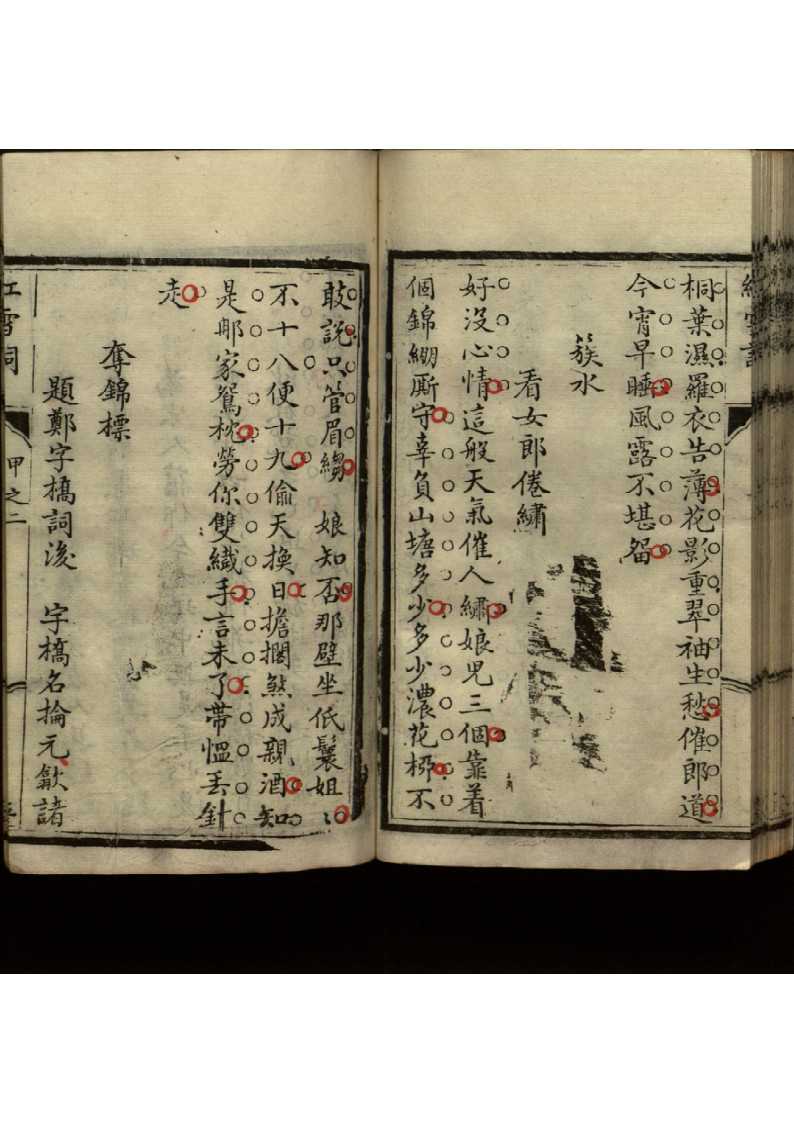 桐葉濕羅衣吿薄花影重翠袖生愁催郎道
今宵早睡風露不堪畱
簇水
看女郎倦繡
好沒心情這般天氣催人繡娘兒三個靠着
個錦綳厮守辜負山塘多少多少濃花柳不
敢說只管眉縐 娘知否那壁坐低鬟姐〻
不十八便十九偷天換日擔擱煞成親酒知
是郍家鴛枕勞你雙纖手言未了帶慍丟針
走
奪錦標
題鄭字橋詞後 字橋名掄元歙諸
紅雪詞
甲之二